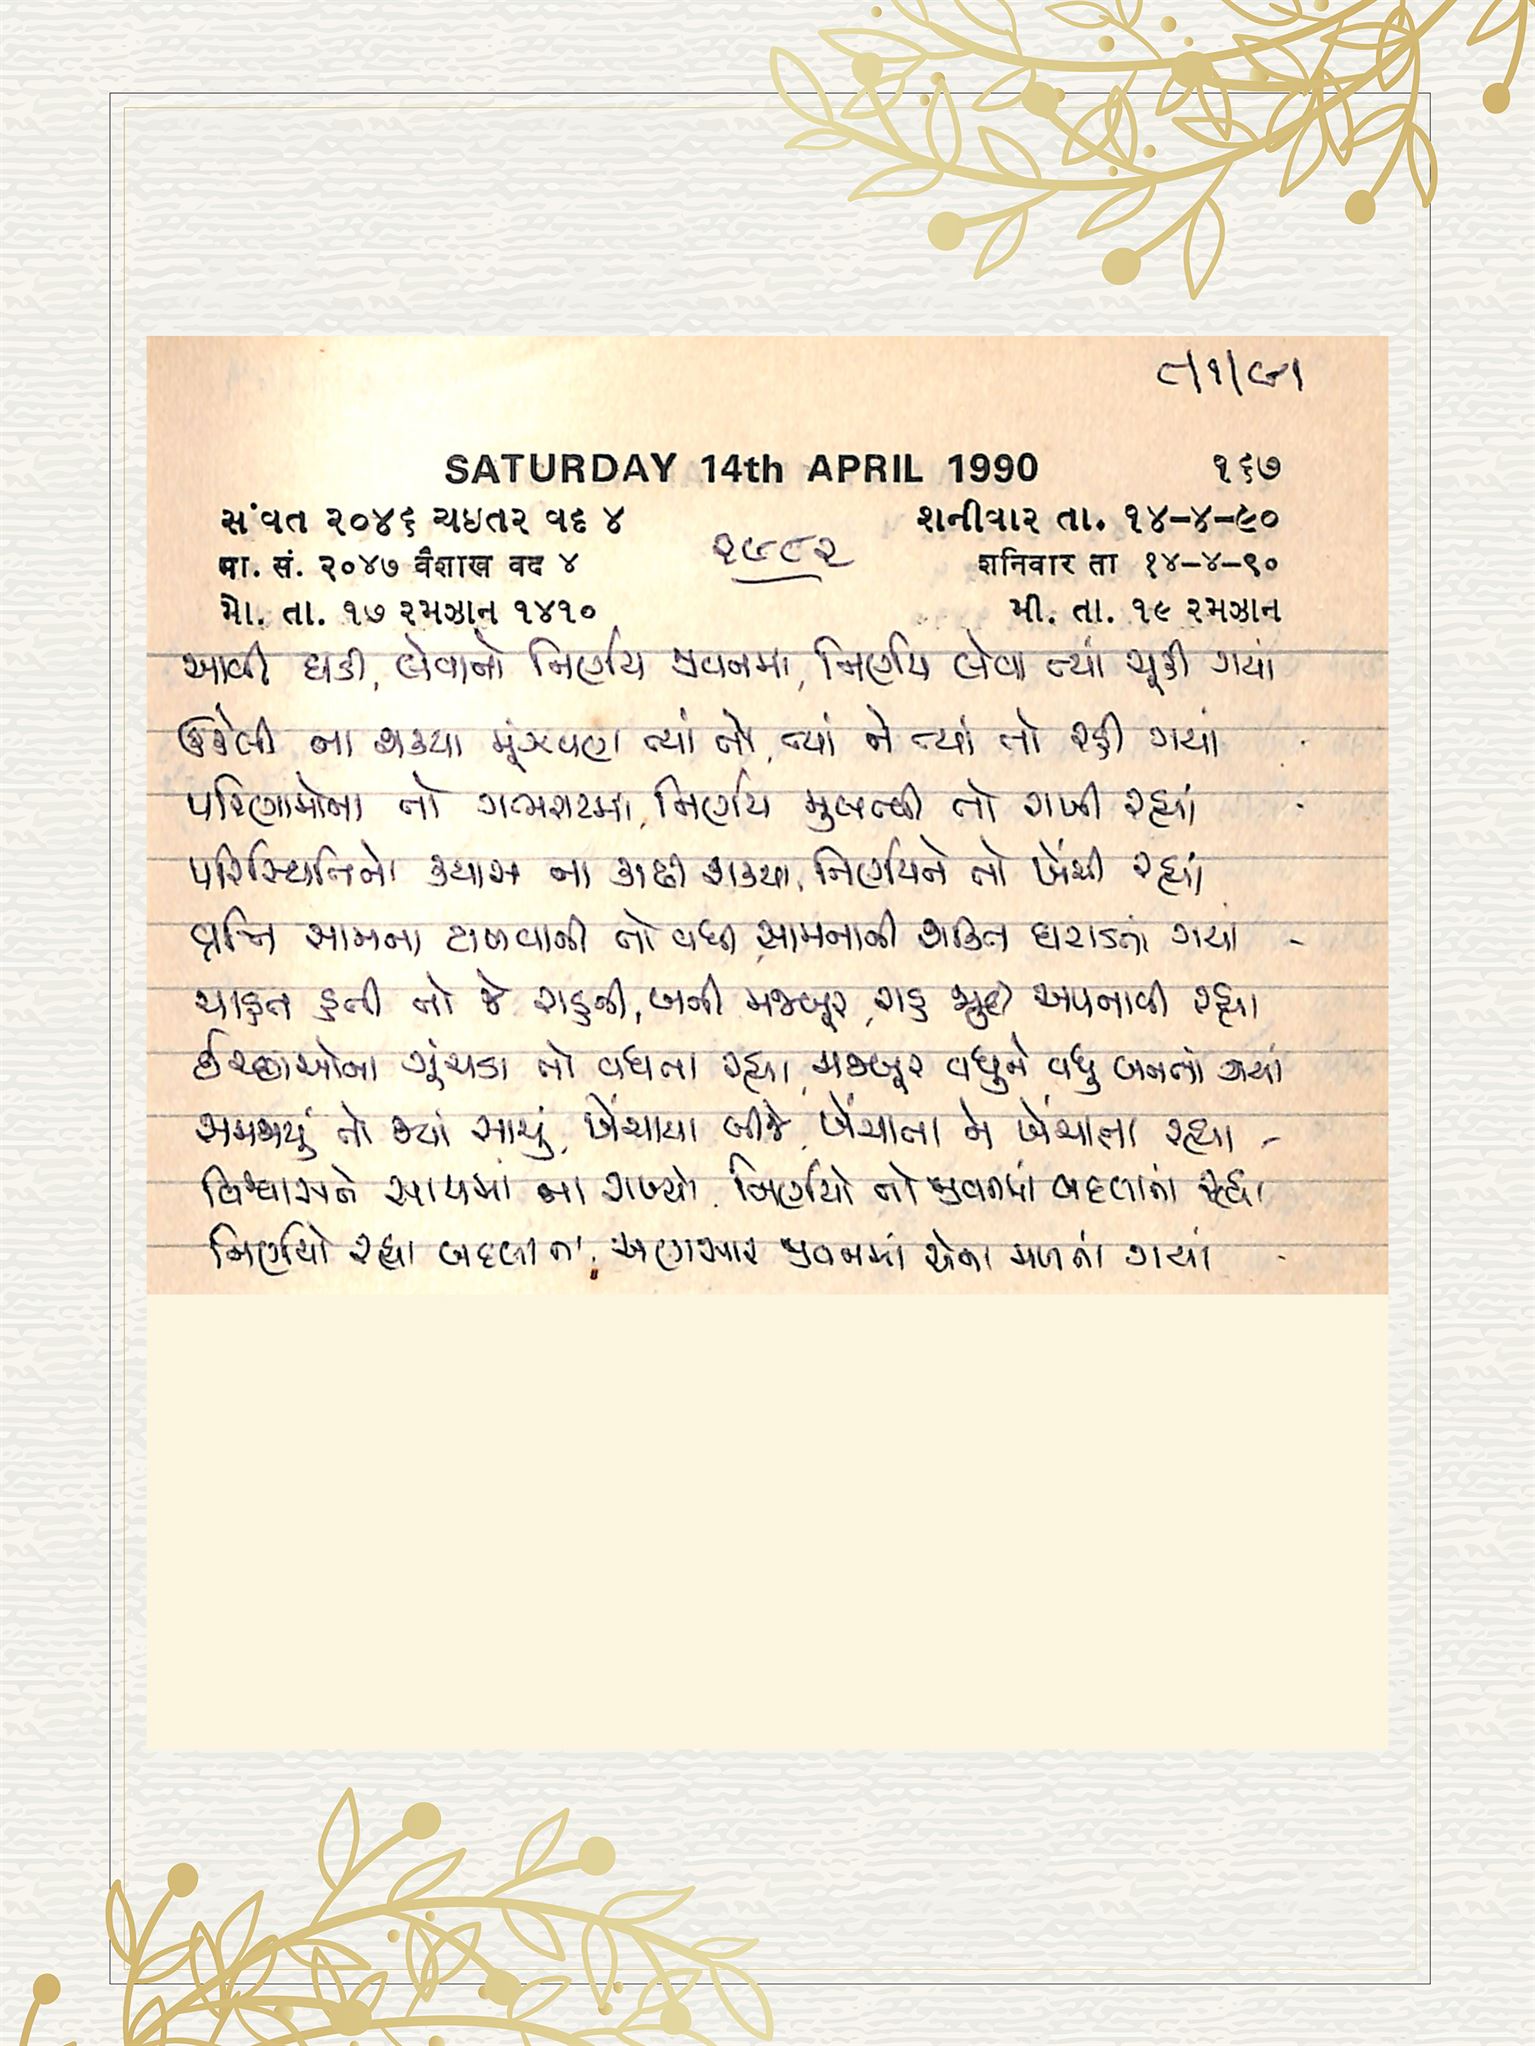 ૮/૧/૯૧
SATURDAY 14th APRIL 1990 ૧૬૭
સંવત ૨૦૪૬ ચઇતર વદ ૪ શનીવાર તા. ૧૪-૪-૯૦
૨૯૮૨
मा. सं. २०४७ वैशाख वद ४ शनिवार ता १४-४-९०
મો. તા. ૧૭ રમઝાન ૧૪૧૦ મી. તા. ૧૯ રમઝાન
આવી ઘડી, લેવાનો નિર્ણય જીવનમાં, નિર્ણય લેવા ત્યાં ચૂકી ગયાં
ઉકેલી ના શક્યા મૂંઝવણ ત્યાં તો, ત્યાં ને ત્યાં તો રહી ગયાં
પરિણામોના તો ગભરાટમાં, નિર્ણય મુલત્વી તો રાખી રહ્યાં
પરિસ્થિતિનો ક્યાસ ના કાઢી શક્યા, નિર્ણયને તો ખેંચી રહ્યાં
વૃત્તિ સામના ટાળવાની તો વધી, સામનાની શક્તિ ઘટાડતાં ગયાં
ચાહત હતી તો જે રાહની, બની મજબૂર, રાહ જુદી અપનાવી રહ્યા
ઈચ્છાઓના ગૂંચડા તો વધતા રહ્યા, મજબૂર વધુને વધુ બનતાં ગયાં
સમજાયું તો ક્યાં સાચું, ખેંચાયા બીજે, ખેંચાતા ને ખેંચાતા રહ્યા
વિશ્વાસને સાથમાં ના રાખ્યો, નિર્ણયો તો જીવનમાં બદલાતાં રહ્યાં
નિર્ણયો રહ્યા બદલાતા, અણસાર જીવનમાં એના મળતાં ગયાં